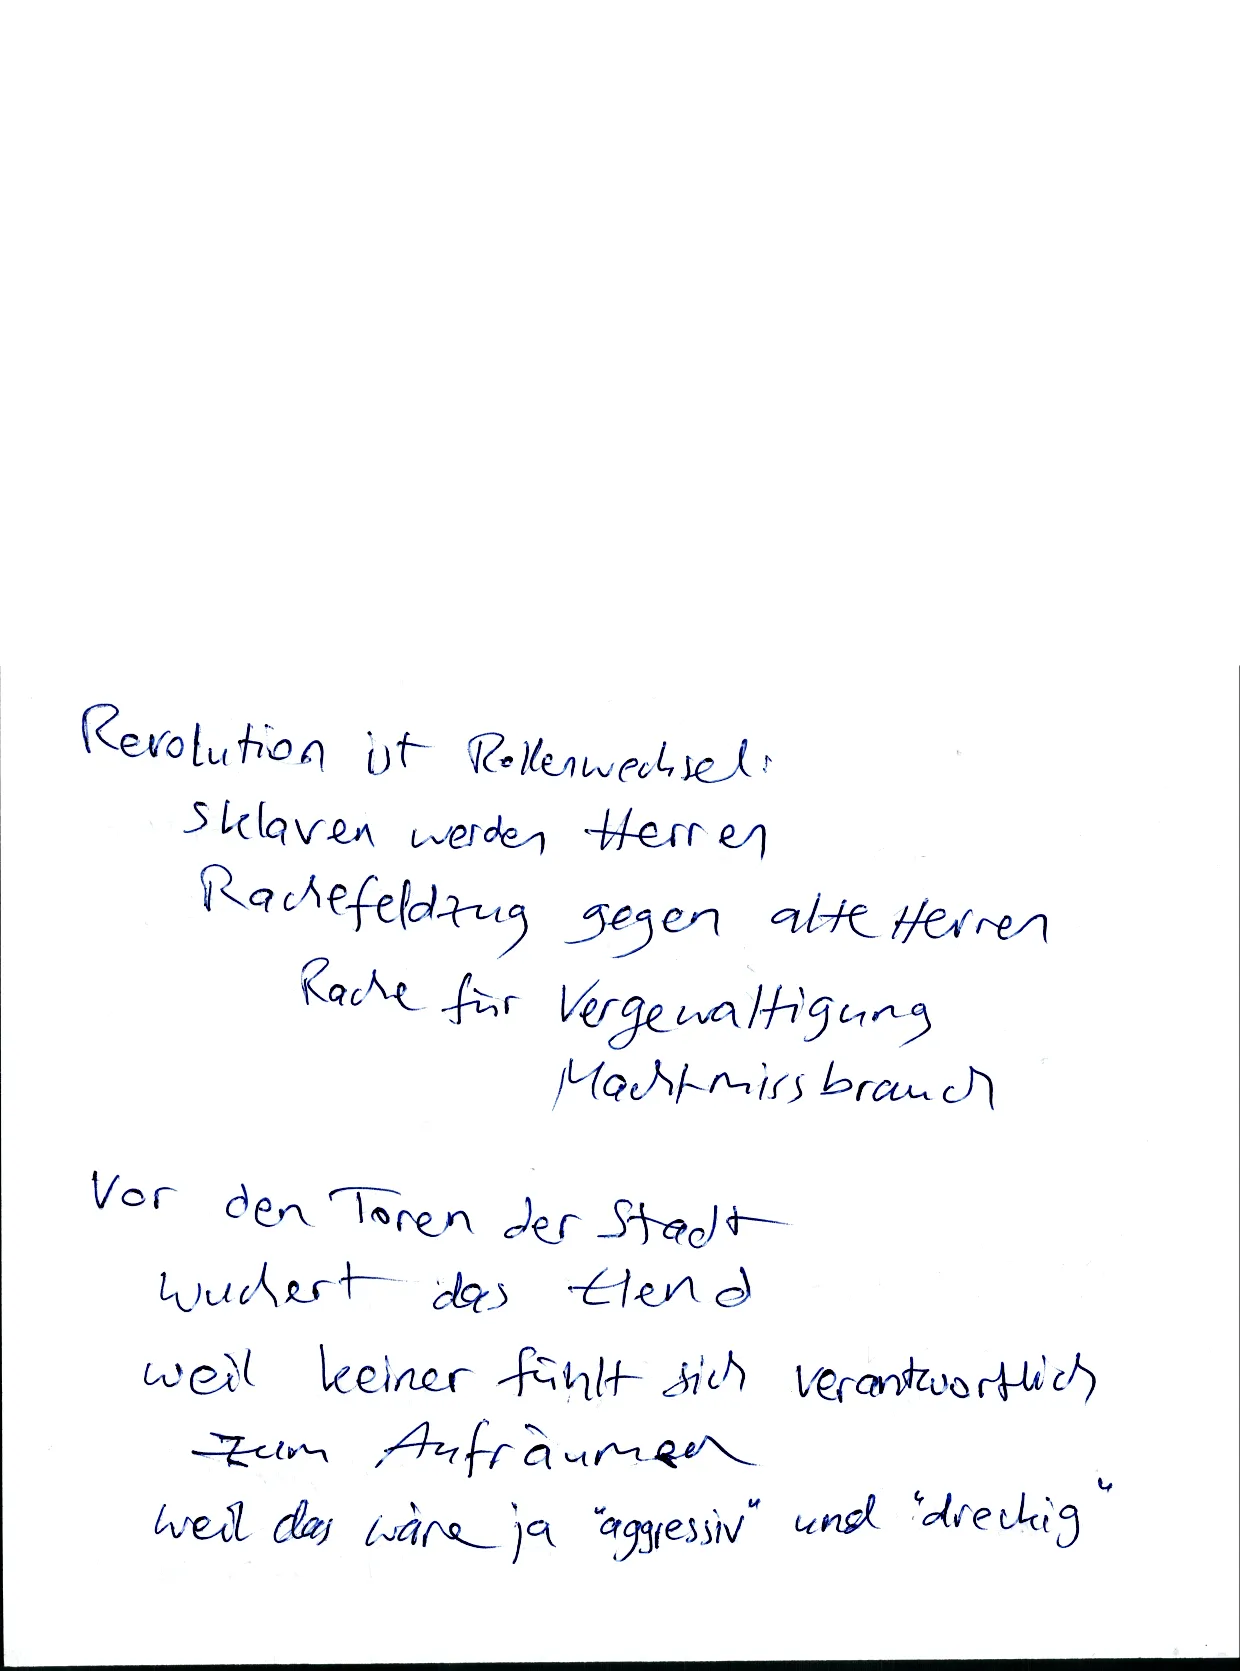 Revolution ist Rollenwechsel:
Sklaven werden Herren
Rachefeldzug gegen alte Herren
Rache für Vergewaltigung
Machtmissbrauch
Vor den Toren der Stadt
wuchert das Elend
weil keiner fühlt sich verantwortlich
zum Aufräumen
weil das wäre ja "aggressiv" und "dreckig"